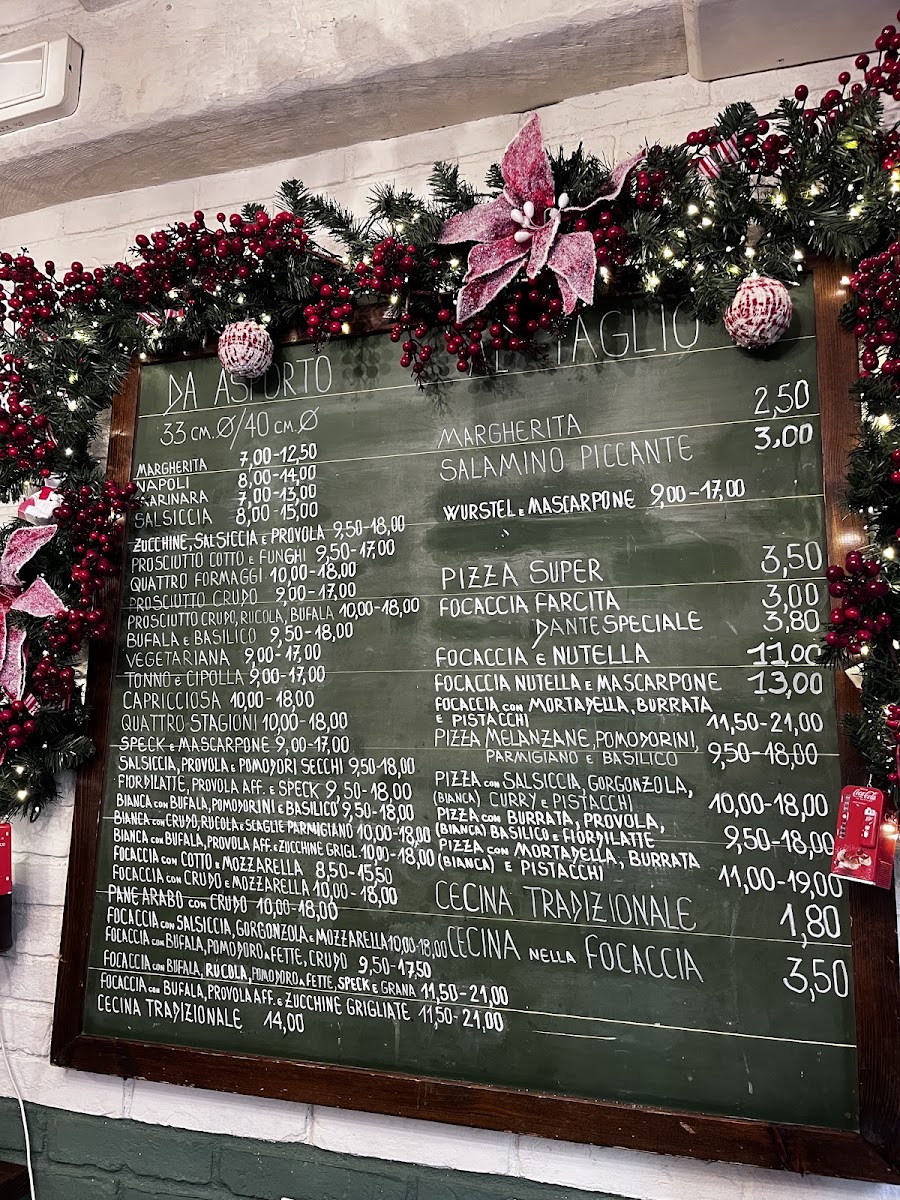 DA ASPORTO
33 CM.Ø/40 CM Ø
MARGHERITA 7,00-12,50
NAPOLI 8,00-14,00
MARINARA 7,00-13,00
SALSICCIA 8,00-15,00
ZUCCHINE, SALSICCIA E PROVOLA 9,50-18,00
PROSCIUTTO COTTO E FUNGHI 9,50-17,00
QUATTRO FORMAGGI 10,00-18,00
PROSCIUTTO CRUDO 9,00-17,00
PROSCIUTTO CRUDO, RUCOLA, BUFALA 10,00-18,00
BUFALA E BASILICO 9,50-18,00
VEGETARIANA 9,00-17,00
TONNO E CIPOLLA 9,00-17,00
CAPRICCIOSA 10,00-18,00
QUATTRO STAGIONI 10,00-18,00
SPECK E MASCARPONE 9,00-17,00
SALSICCIA, PROVOLA E POMODORI SECCHI 9,50-18,00
FIORDILATTE, PROVOLA AFF. E SPECK 9,50-18,00
BIANCA CON BUFALA, POMODORINI E BASILICO 9,50-18,00
BIANCA CON CRUDO, RUCOLA E SCAGLIE PARMIGIANO 10,00-18,00
BIANCA CON BUFALA, PROVOLA AFF. E ZUCCHINE GRIGL. 10,00-18,00
FOCACCIA CON COTTO E MOZZARELLA 8,50-15,50
FOCACCIA CON CRUDO E MOZZARELLA 10,00-18,00
PANE ARABO CON CRUDO 10,00-18,00
FOCACCIA CON SALSICCIA, GORGONZOLA E MOZZARELLA 10,00-18,00
FOCACCIA CON BUFALA, POMODORO A FETTE, CRUDO 9,50-17,50
FOCACCIA CON BUFALA, RUCOLA, POMODORO A FETTE, SPECK E GRANA 11,50-21,00
FOCACCIA CON BUFALA, PROVOLA AFF. E ZUCCHINE GRIGLIATE 11,50-21,00
CECINA TRADIZIONALE 14,00
AL TAGLIO
MARGHERITA 2,50
SALAMINO PICCANTE 3,00
WURSTEL E MASCARPONE 9,00-17,00
PIZZA SUPER 3,50
FOCACCIA FARCITA 3,00
DANTESPECIALE 3,80
FOCACCIA E NUTELLA 11,00
FOCACCIA NUTELLA E MASCARPONE 13,00
FOCACCIA CON MORTADELLA, BURRATA
E PISTACCHI 11,50-21,00
PIZZA MELANZANE, POMODORINI,
PARMIGIANO E BASILICO 9,50-18,00
PIZZA CON SALSICCIA, GORGONZOLA,
(BIANCA) CURRY E PISTACCHI 10,00-18,00
PIZZA CON BURRATA, PROVOLA,
(BIANCA) BASILICO E FIORDILATTE 9,50-18,00
PIZZA CON MORTADELLA, BURRATA
(BIANCA) E PISTACCHI 11,00-19,00
CECINA TRADIZIONALE 1,80
CECINA NELLA FOCACCIA 3,50
Coca-Cola